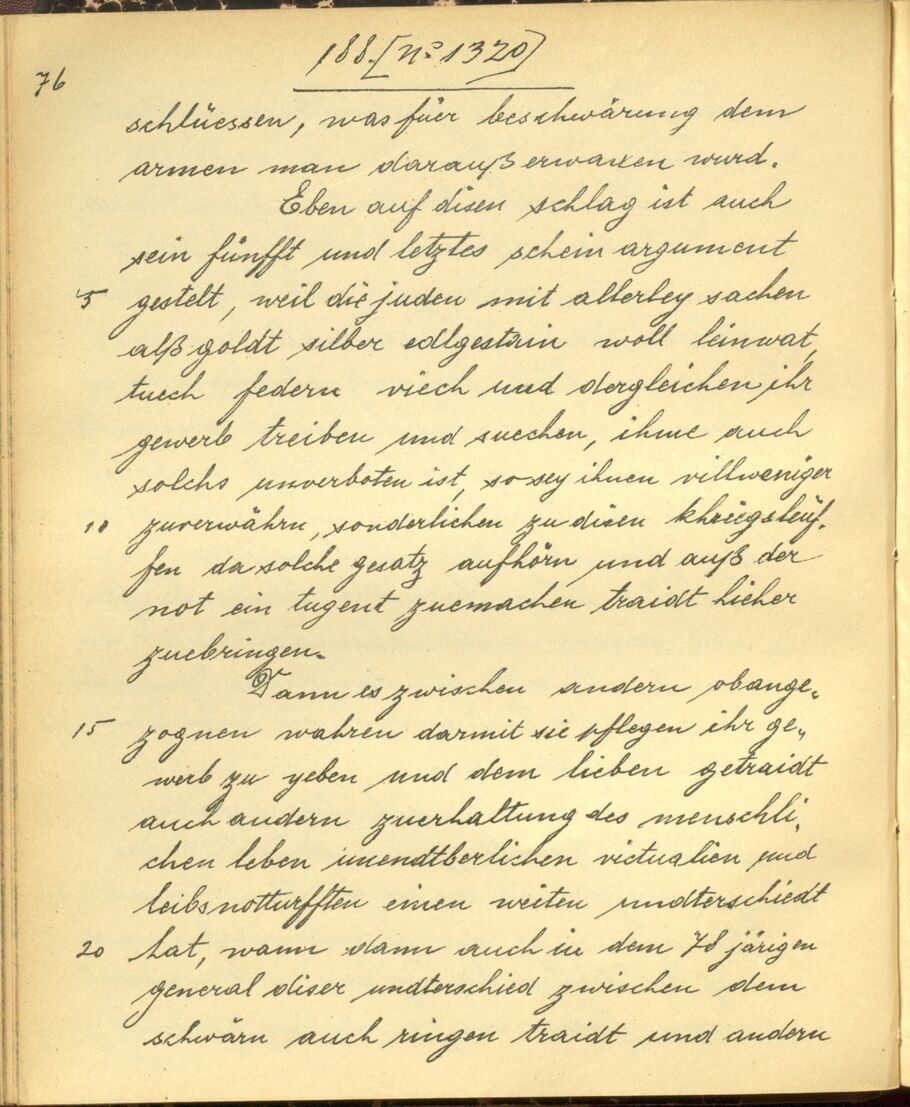 188. [No 1320]
76
schlüessen, was füer beschwärung dem
armen man darauß erwaxen wurd.
Eben auf disen schlag ist auch
sein fünfft und letztes schein argument
5 gestelt, weil die juden mit allerley sachen
alß goldt silber edlgestain woll leinwat,
tuech federn viech und dergleichen ihr
gewerb treiben und suechen, ihme auch
solchs unverboten ist, so sey ihnen villweniger
10 zuverwährn, sonderlichen zu disen khriegsleüf,
fen da solche gesatz aufhörn und auß der
not ein tugent zuemachen traidt hieher
zuebringen.
Dann es zwischen andern obange„
15 zognen wahren darmit sie pflegen ihr ge„
werb zu yeben und dem lieben getraidt
auch andern zuerhaltung des menschli„
chen leben unendtberlichen victualien und
leibsnotturfften einen weiten undterschiedt
20 hat, wann dann auch in dem 78 järigen
general diser undterschied zwischen dem
schwärn auch ringen traidt und andern